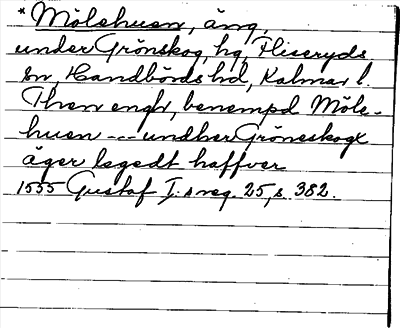 * Mölehuen, äng,
under Grönskog, hg, Fliseryds
sn, Handbörds hd, Kalmar l.
Then engh, benempd Möle-
huen --- undher Gröneskogx
äger legedt haffver
1555 Gustaf I:s reg. 25, s. 382.